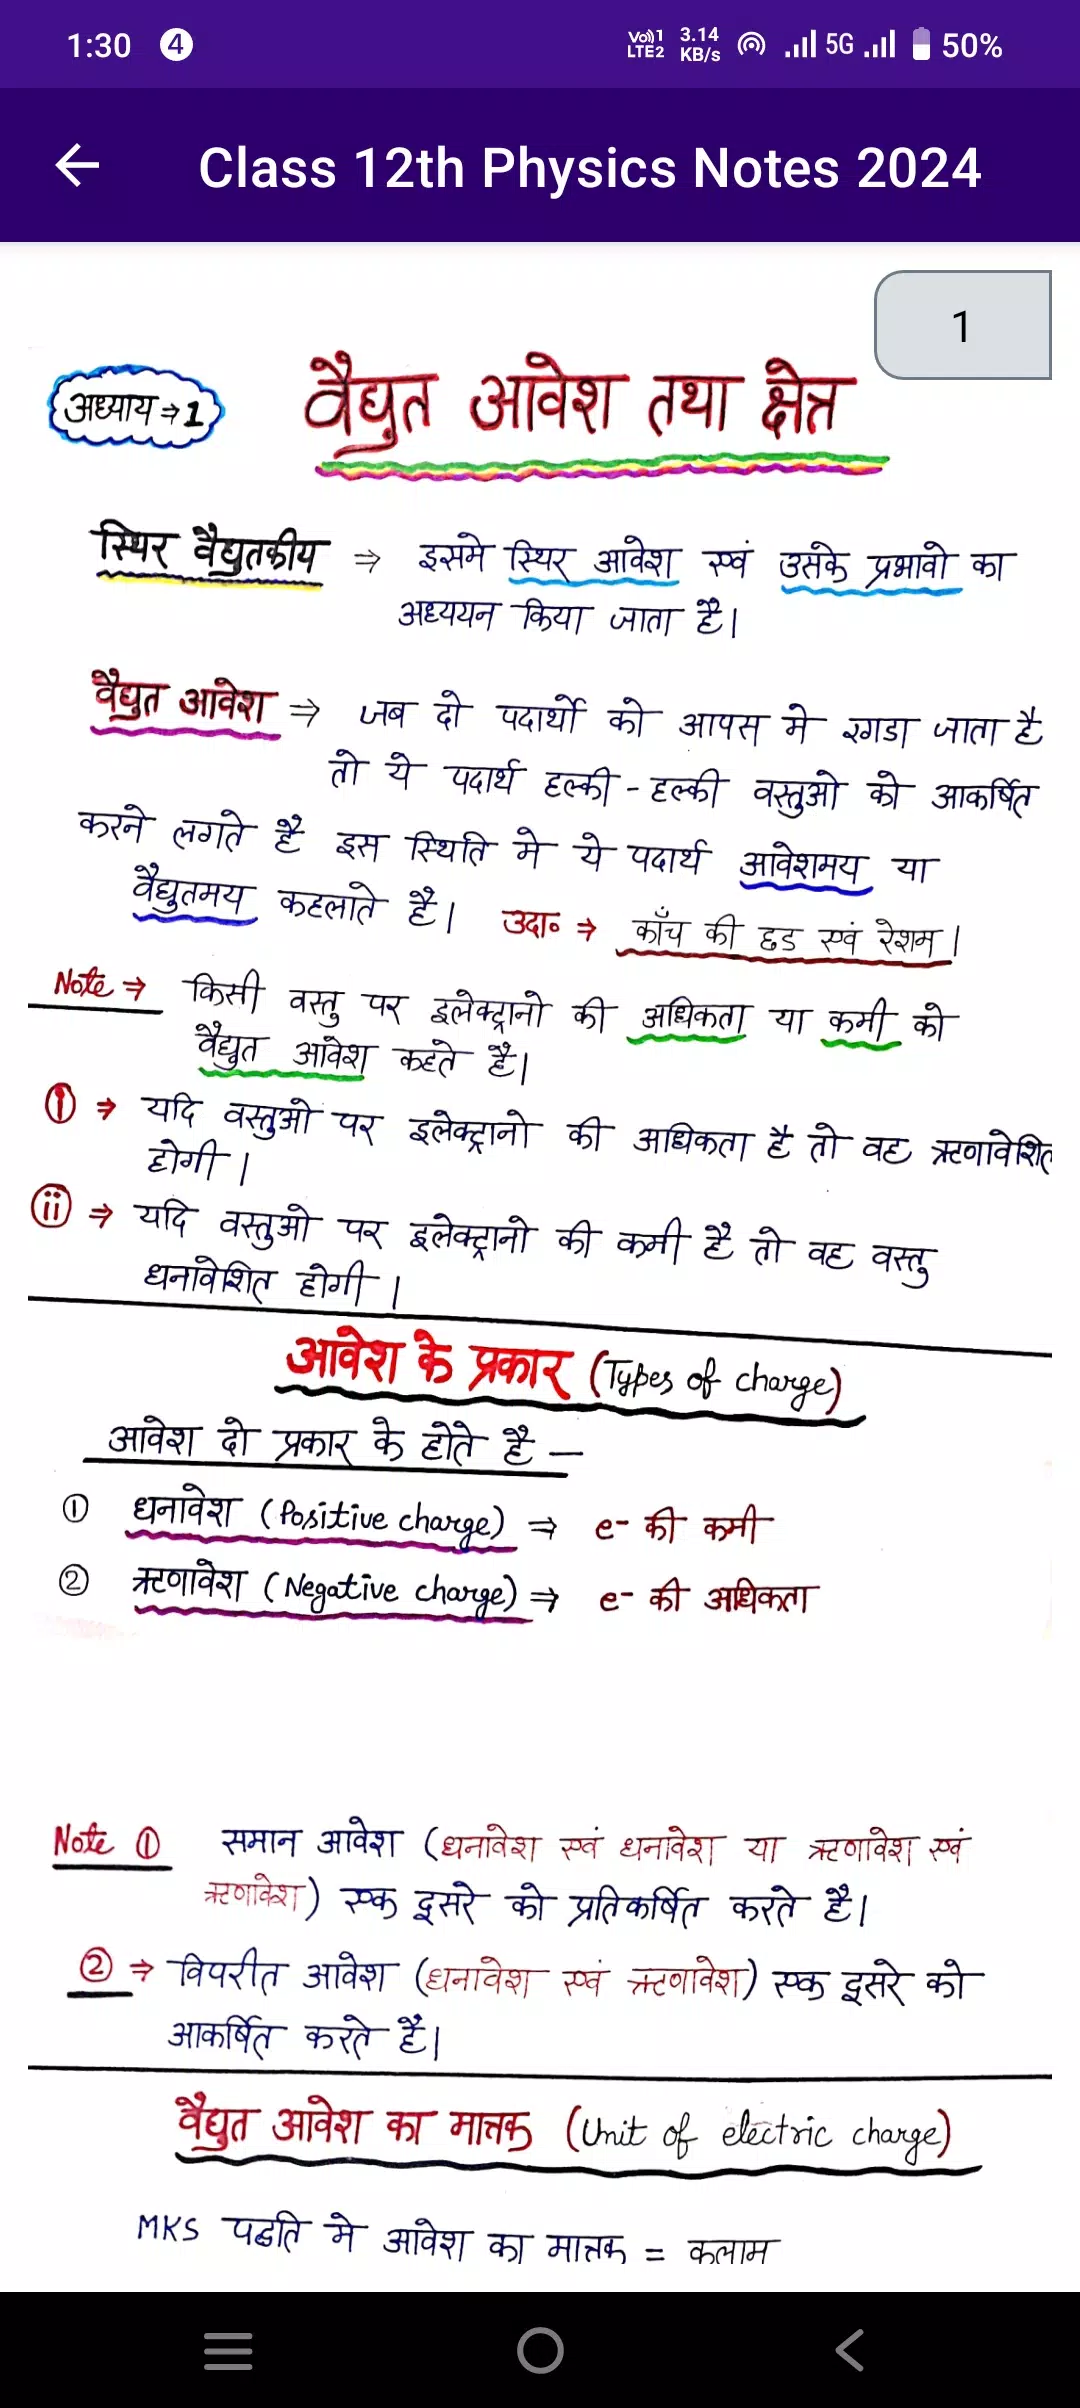 1:30 4 Vo))1 LTE2 3.14 KB/s 5G 50%
Class 12th Physics Notes 2024
1
अध्याय ⇒ 1 वैद्युत आवेश तथा क्षेत्र
स्थिर वैद्युतकीय ⇒ इसमे स्थिर आवेश एवं उसके प्रभावो का
अध्ययन किया जाता है।
वैद्युत आवेश ⇒ जब दो पदार्थो को आपस मे रगडा जाता है
तो ये पदार्थ हल्की - हल्की वस्तुओ को आकर्षित
करने लगते है इस स्थिति मे ये पदार्थ आवेशमय या
वैद्युतमय कहलाते है। उदा० ⇒ काँच की छड एवं रेशम।
Note ⇒ किसी वस्तु पर इलेक्ट्रानो की अधिकता या कमी को
वैद्युत आवेश कहते है।
(i) ⇒ यदि वस्तुओ पर इलेक्ट्रानो की अधिकता है तो वह ऋणावेशित
होगी।
(ii) ⇒ यदि वस्तुओ पर इलेक्ट्रानो की कमी है तो वह वस्तु
धनावेशित होगी।
आवेश के प्रकार (Types of charge)
आवेश दो प्रकार के होते है —
① धनावेश (Positive charge) ⇒ e- की कमी
② ऋणावेश (Negative charge) ⇒ e- की अधिकता
Note ① समान आवेश (धनावेश एवं धनावेश या ऋणावेश एवं
ऋणावेश) एक दूसरे को प्रतिकर्षित करते है।
② ⇒ विपरीत आवेश (धनावेश एवं ऋणावेश) एक दूसरे को
आकर्षित करते है।
वैद्युत आवेश का मात्रक (Unit of electric charge)
MKS पद्धति मे आवेश का मात्रक = कूलाम